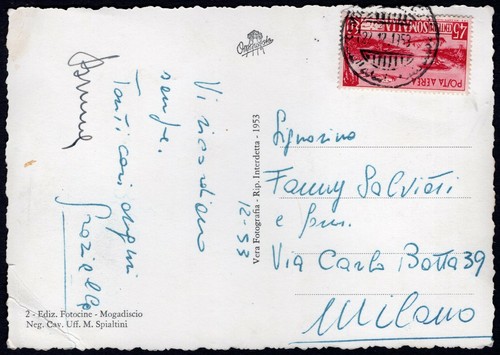 Vi ricordiamo
sempre.
Tanti cari auguri
Graziella
12-53
Vera Fotografia - Rip. Interdetta - 1953
2 - Ediz. Fotocine - Mogadiscio
Neg. Cav. Uff. M. Spialtini
SOMALIA
45
POSTA AEREA
12.1953
Signorina
Fanny Salvieti
e fam.
Via Carlo Botta 39
Milano